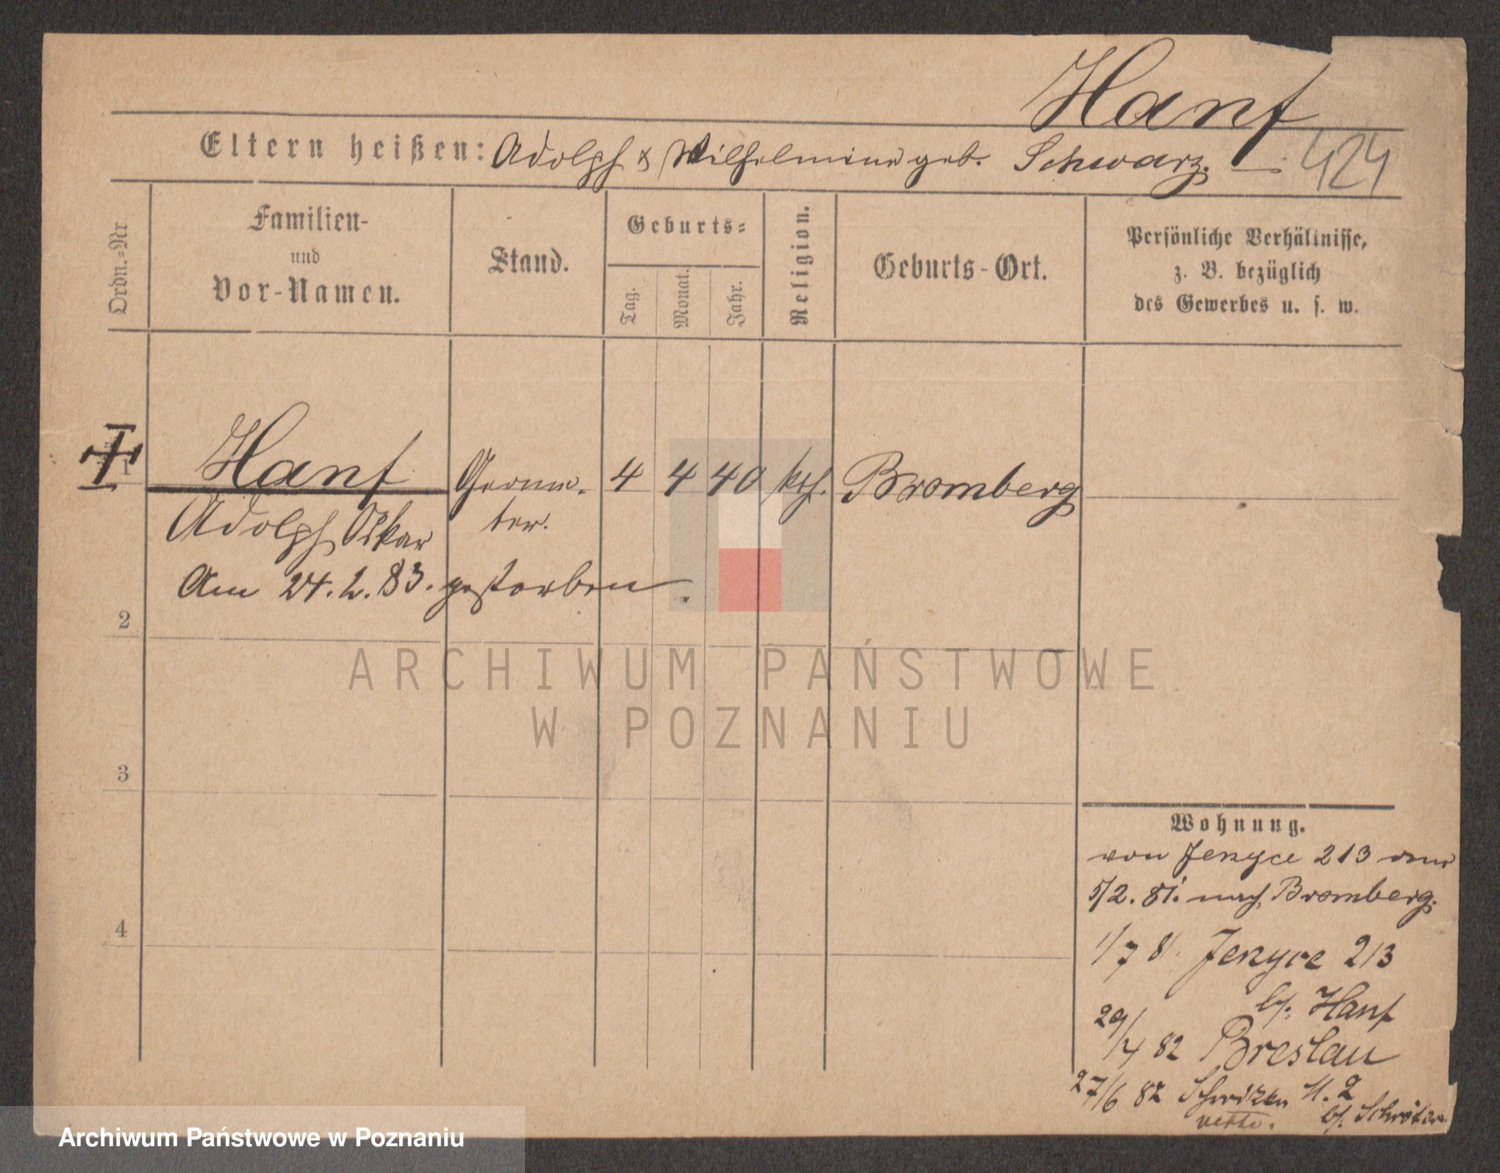 Hanf
Eltern heißen: Adolph & Wilhelmine geb. Schwarz. 424
Ordn.-Nr
Familien-
und
Vor-Namen.
Stand.
Geburts-
Tag.
Monat.
Jahr.
Religion.
Geburts-Ort.
Persönliche Verhältnisse,
z. B. bezüglich
des Gewerbes u. s. w.
1 Hanf Geome- 4 4 40 kth. Bromberg
Adolph Oskar ter.
Am 24.2.83. gestorben.
2
ARCHIWUM PAŃSTWOWE
W POZNANIU
3
4
Wohnung.
von Jerzyce 213 am
5/2. 81. nach Bromberg.
1/7 81 Jerzyce 213
b/. Hanf
29/4 82 Breslau
27/6 82 11. 2
b/.
Archiwum Państwowe w Poznaniu